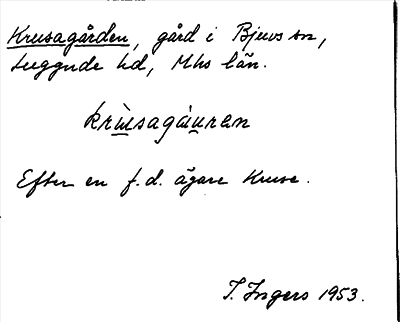 Krusagården, gård i Bjuvs sn,
Luggude hd, Mhs län.
krùsagåuren
Efter en f.d. ägare Kruse.
I. Ingers 1953.